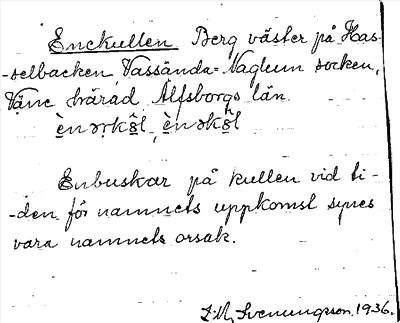 Enekullen Berg väster på Has-
-selbacken, Vassända-Naglum socken,
Väne härad Älfsborgs län
Enbuskar på kullen vid ti-
-den för namnets uppkomst synes
vara namnets orsak.
Svenungsson. 1936.